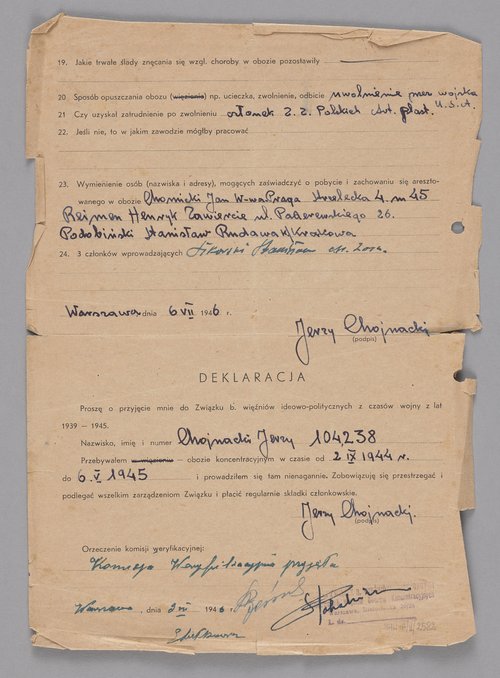 19. Jakie trwałe ślady znęcania się wzgl. choroby w obozie pozostawiły
20 Sposób opuszczania obozu (więzienia) np. ucieczka, zwolnienie, odbicie uwolnienie przez wojska
U.S.A.
21 Czy uzyskał zatrudnienie po zwolnieniu członek Z. Z. Polskich Art. plast.
22. Jeśli nie, to w jakim zawodzie mógłby pracować
23. Wymienienie osób (nazwiska i adresy), mogących zaświadczyć o pobycie i zachowaniu się areszto-
wanego w obozie Chomicki Jan W-wa Praga Strzelecka 4. m 45
Reiman Henryk Zawiercie ul. Paderewskiego 26.
Podobiński Stanisław Rudawa k/Krakowa
24. 3 członków wprowadzających Sikorski Stanisław
Warszawa dnia 6 VII 1946 r.
Jerzy Chojnacki
(podpis)
DEKLARACJA
Proszę o przyjęcie mnie do Związku b. więźniów ideowo-politycznych z czasów wojny z lat
1939 – 1945.
Nazwisko, imię i numer Chojnacki Jerzy 104238
Przebywałem w więzieniu – obozie koncentracyjnym w czasie od 2 IX 1944 r.
do 6. V 1945 i prowadziłem się tam nienagannie. Zobowiązuję się przestrzegać i
podlegać wszelkim zarządzeniom Związku i płacić regularnie składki członkowskie.
Jerzy Chojnacki.
(podpis)
Orzeczenie komisji weryfikacyjnej:
Komisja Weryfikacyjna przyjęła
Warszawa, dnia 1946